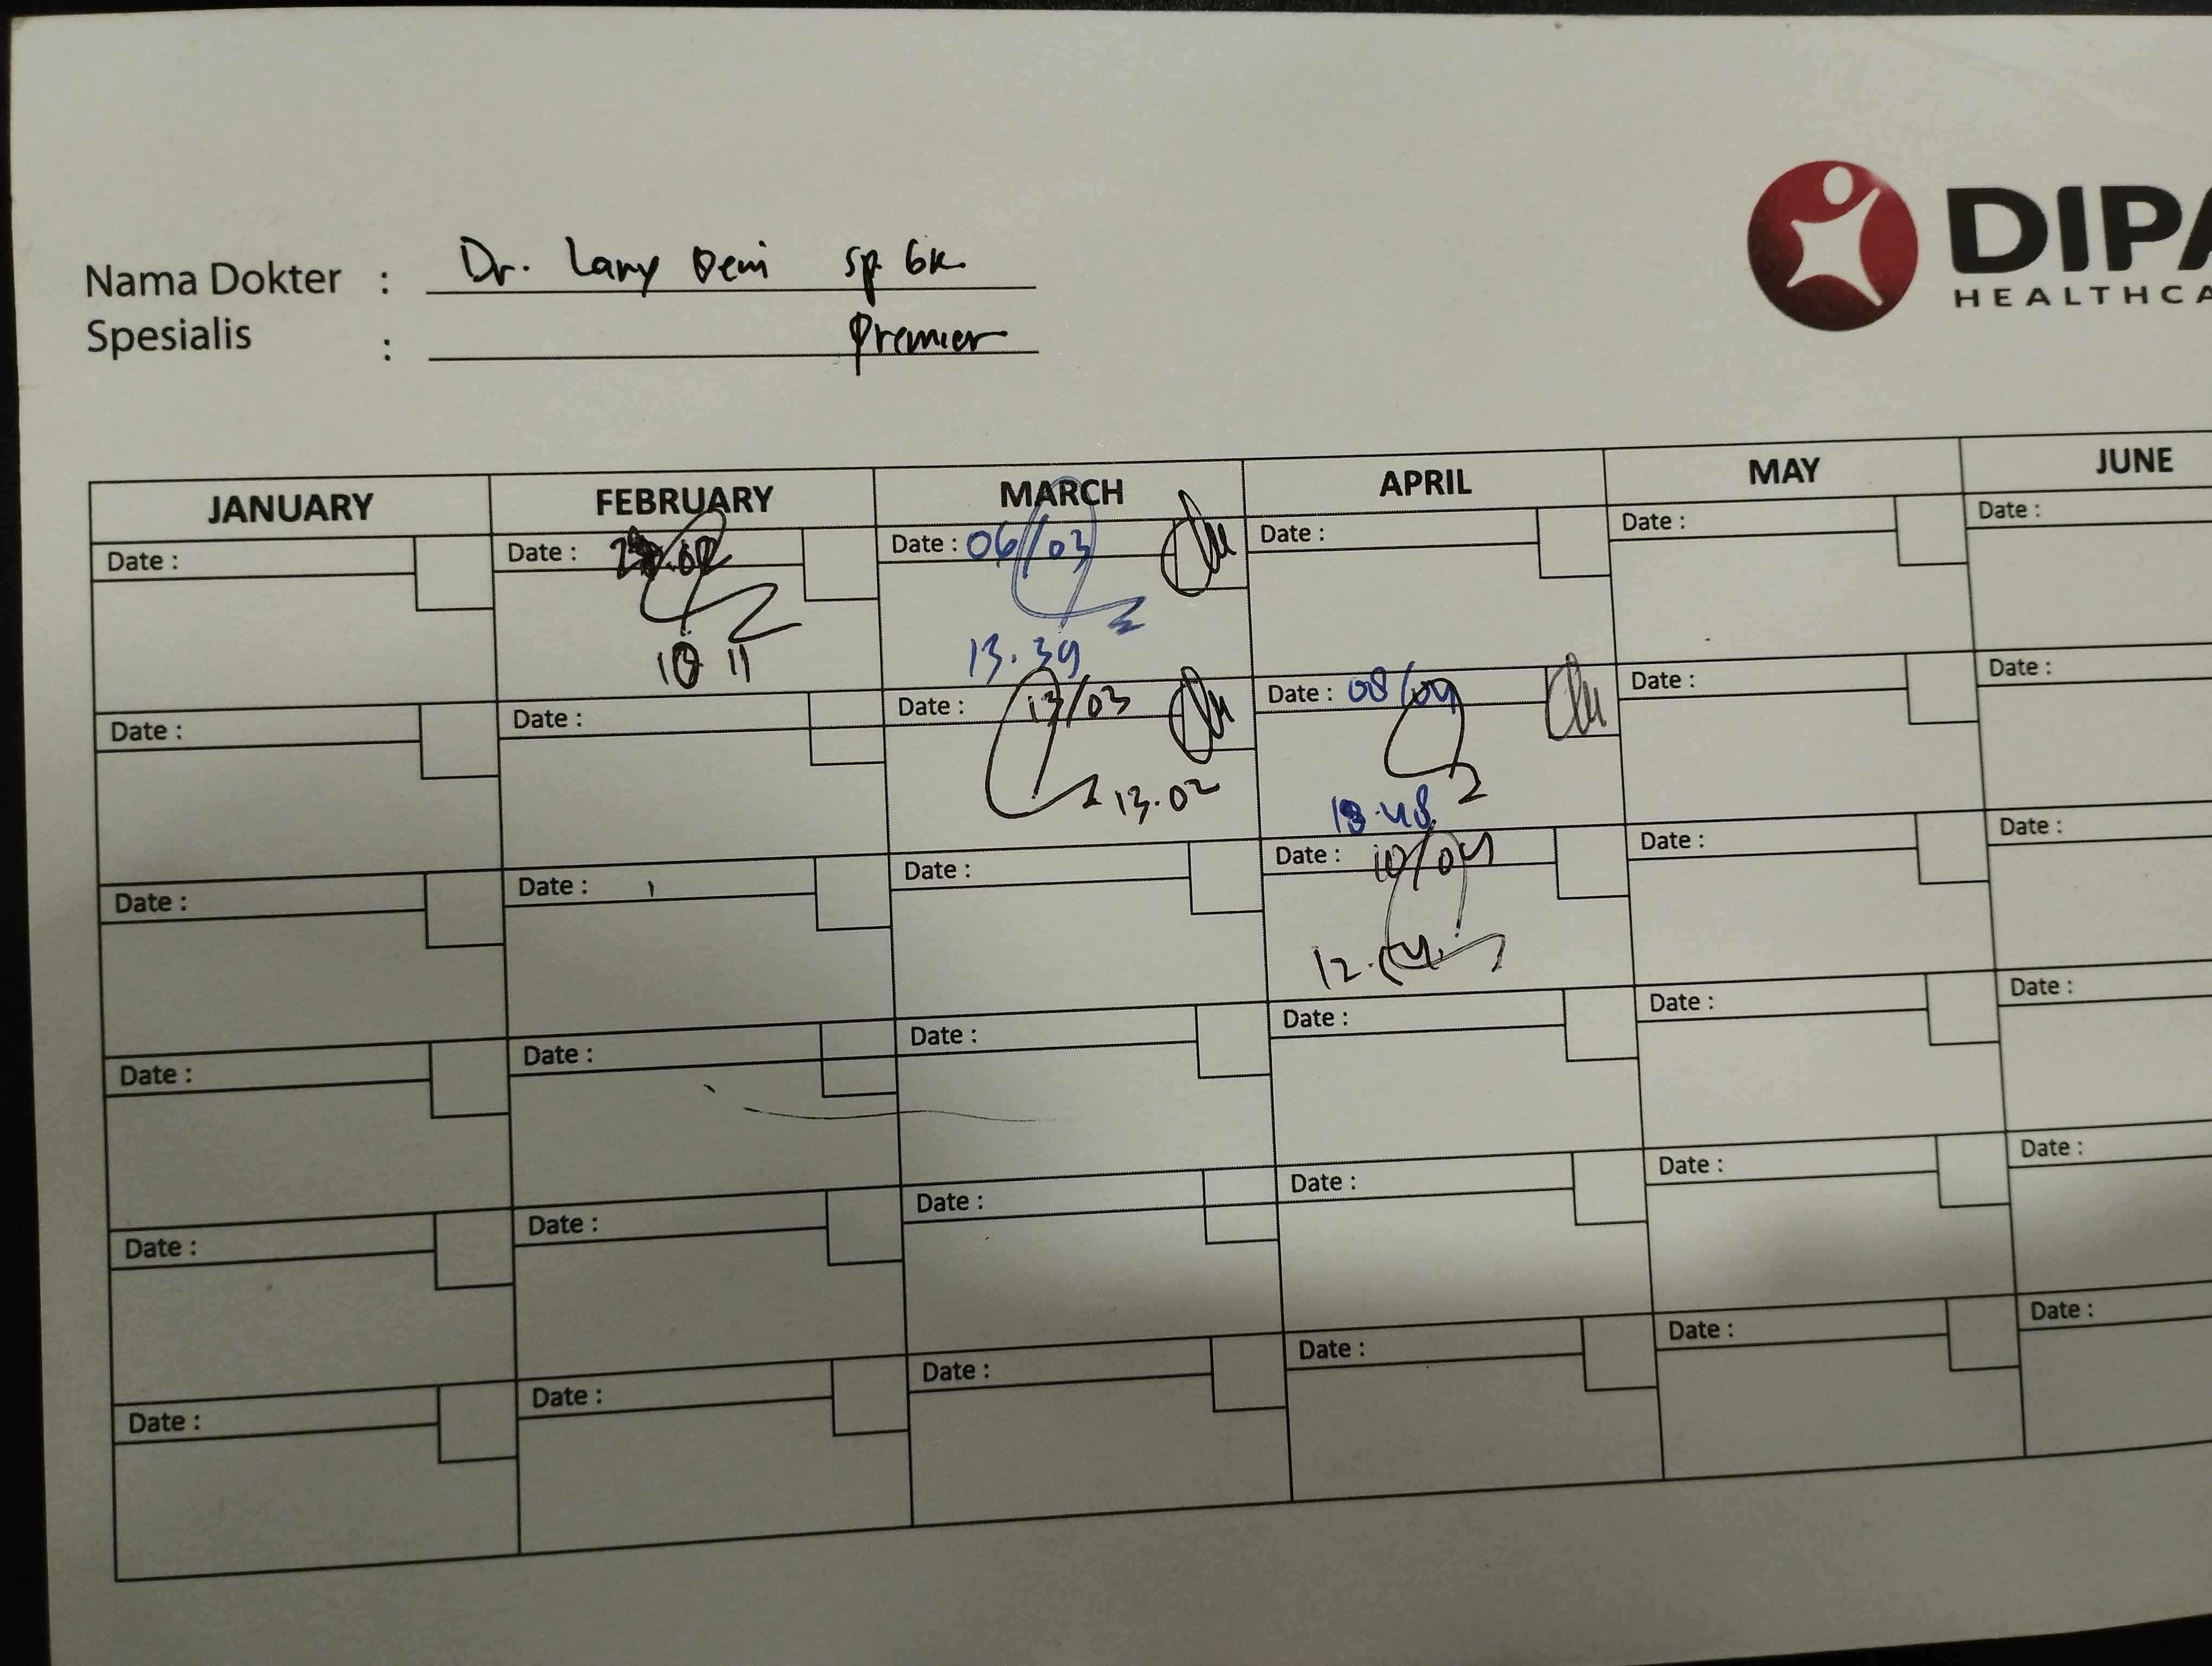 DIPA
HEALTHCA
Nama Dokter : Dr. Lany Demi Sp GK
Spesialis : Premier
JANUARY FEBRUARY MARCH APRIL MAY JUNE
Date : Date : Date : 06/03 Date : Date : Date :
10 11 13.39
Date : Date : Date : 13/03 Date : 08/04 Date : Date :
13.02 13.48
Date : Date : Date : Date : 10/04 Date : Date :
12.
Date : Date : Date : Date : Date : Date :
Date : Date : Date : Date : Date : Date :
Date : Date : Date : Date : Date : Date :